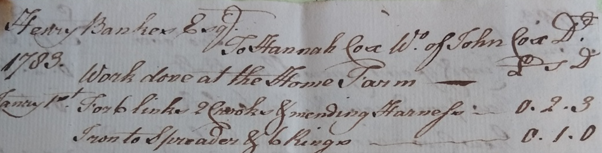 Henry Bankes Esqr.
To Hannah Cox Wo. of John Cox Dr.
1783. Work done at the Home Farm — £ s D
Janry 1st For 6 links 2 Crooks & mending Harness — 0 . 2 . 3
Iron to Spreader & 6 Rings — 0 . 1 . 0